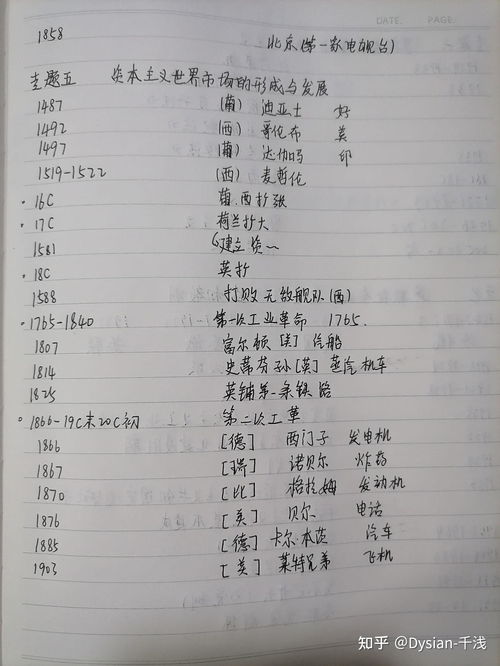 DATE. PAGE.
1858 北京(第一家电视台)
主题五 资本主义世界市场的形成与发展
1487 (葡) 迪亚士 好
1492 (西) 哥伦布 美
1497 (葡) 达伽玛 印
1519-1522 (西) 麦哲伦
·16C 葡.西扩张
·17C 荷兰扩大
1581 建立资~
·18C 英扩
1588 打败无敌舰队(西)
·1765-1840 第一次工业革命 1765.
1807 富尔顿[美] 汽船
1814 史蒂芬孙[英] 蒸汽机车
1825 英铺第一条铁路
·1866-19C末20C初 第二次工革
1866 [德] 西门子 发电机
1867 [瑞] 诺贝尔 炸药
1870 [比] 格拉姆 发动机
1876 [美] 贝尔 电话
1885 [德] 卡尔·本茨 汽车
1903 [美] 莱特兄弟 飞机
知乎 @Dysian-千浅